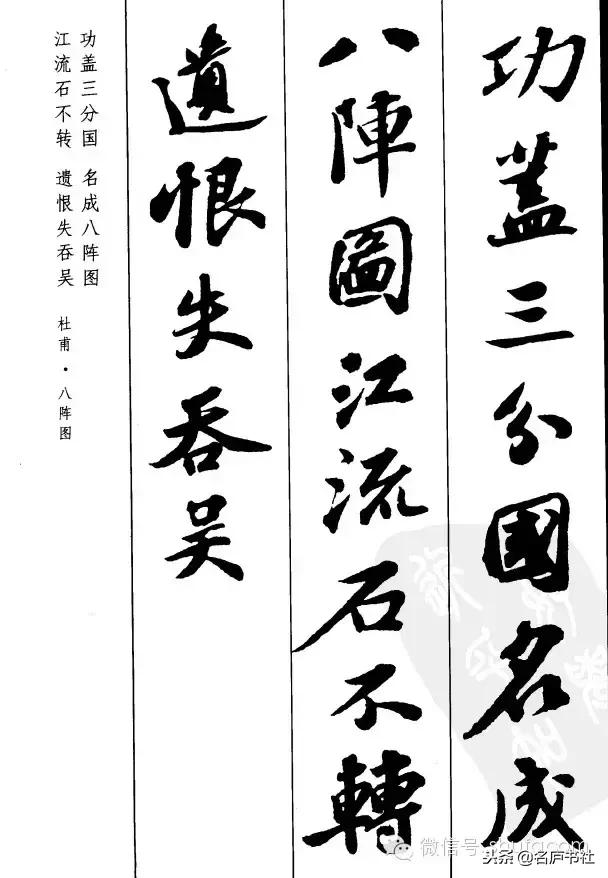 功蓋三分國名成
八陣圖江流石不轉
遺恨失吞吴
功盖三分国 名成八阵图
江流石不转 遗恨失吞吴
杜甫·八阵图
微信号: shufacom
头条@名庐书社